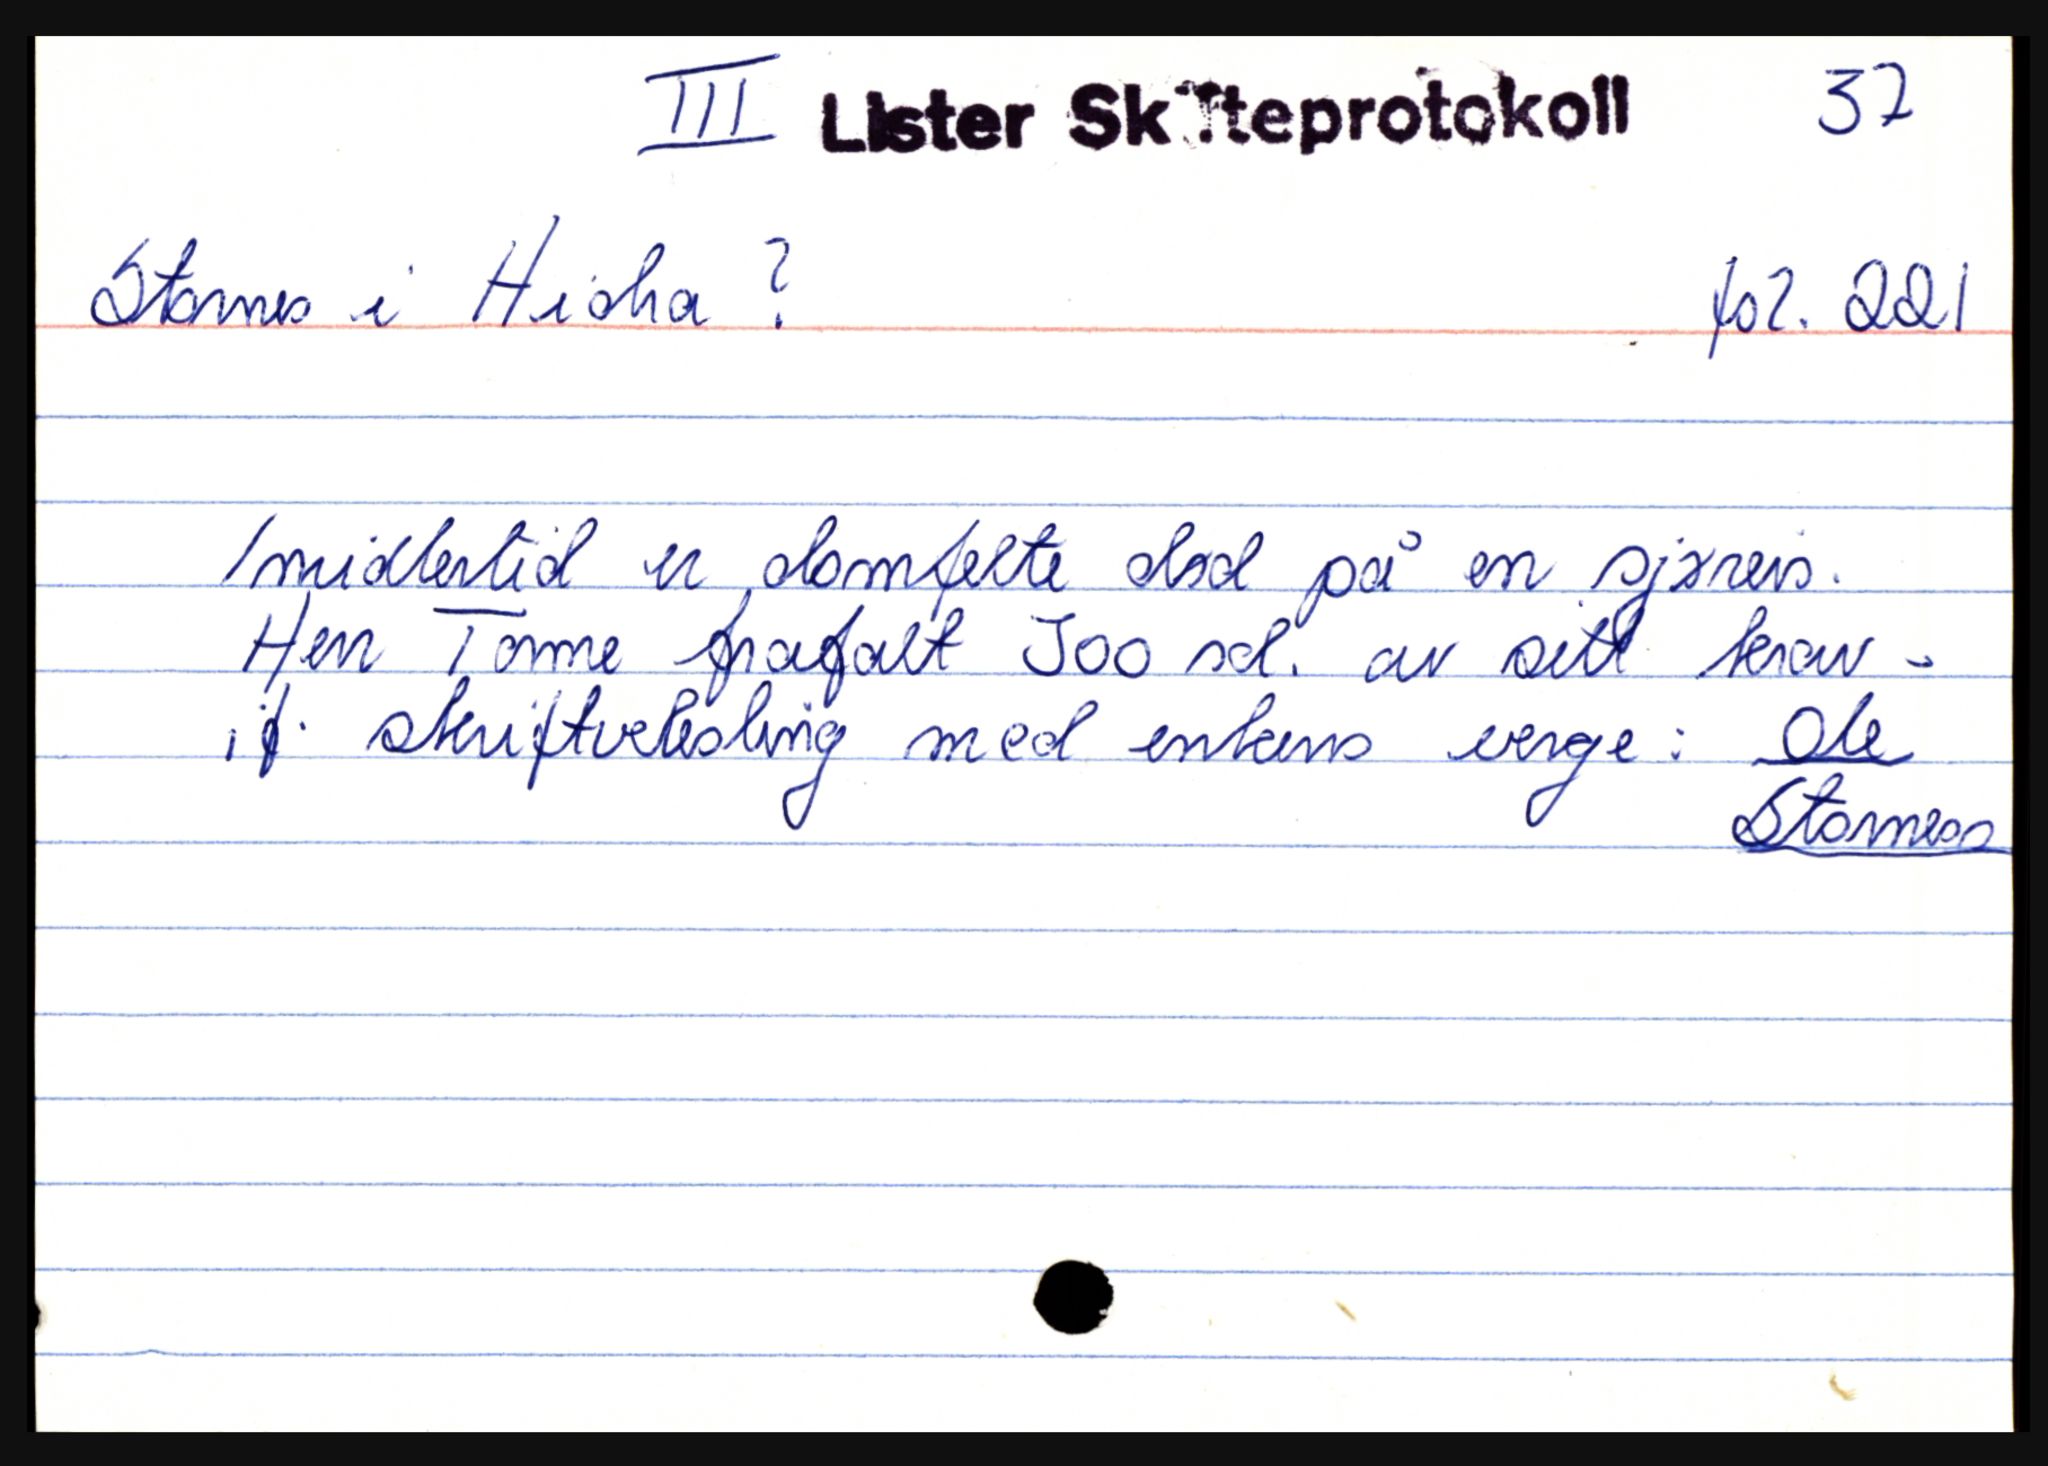 III Lister Skifteprotokoll 37
Stornes i Hidra? fol. 221
Imidlertid er domfelte død på en sjøreis.
Herr Torne frafalt 500 sd. av sitt krav -
if. skriftveksling med enkens verge: Ole
Storness